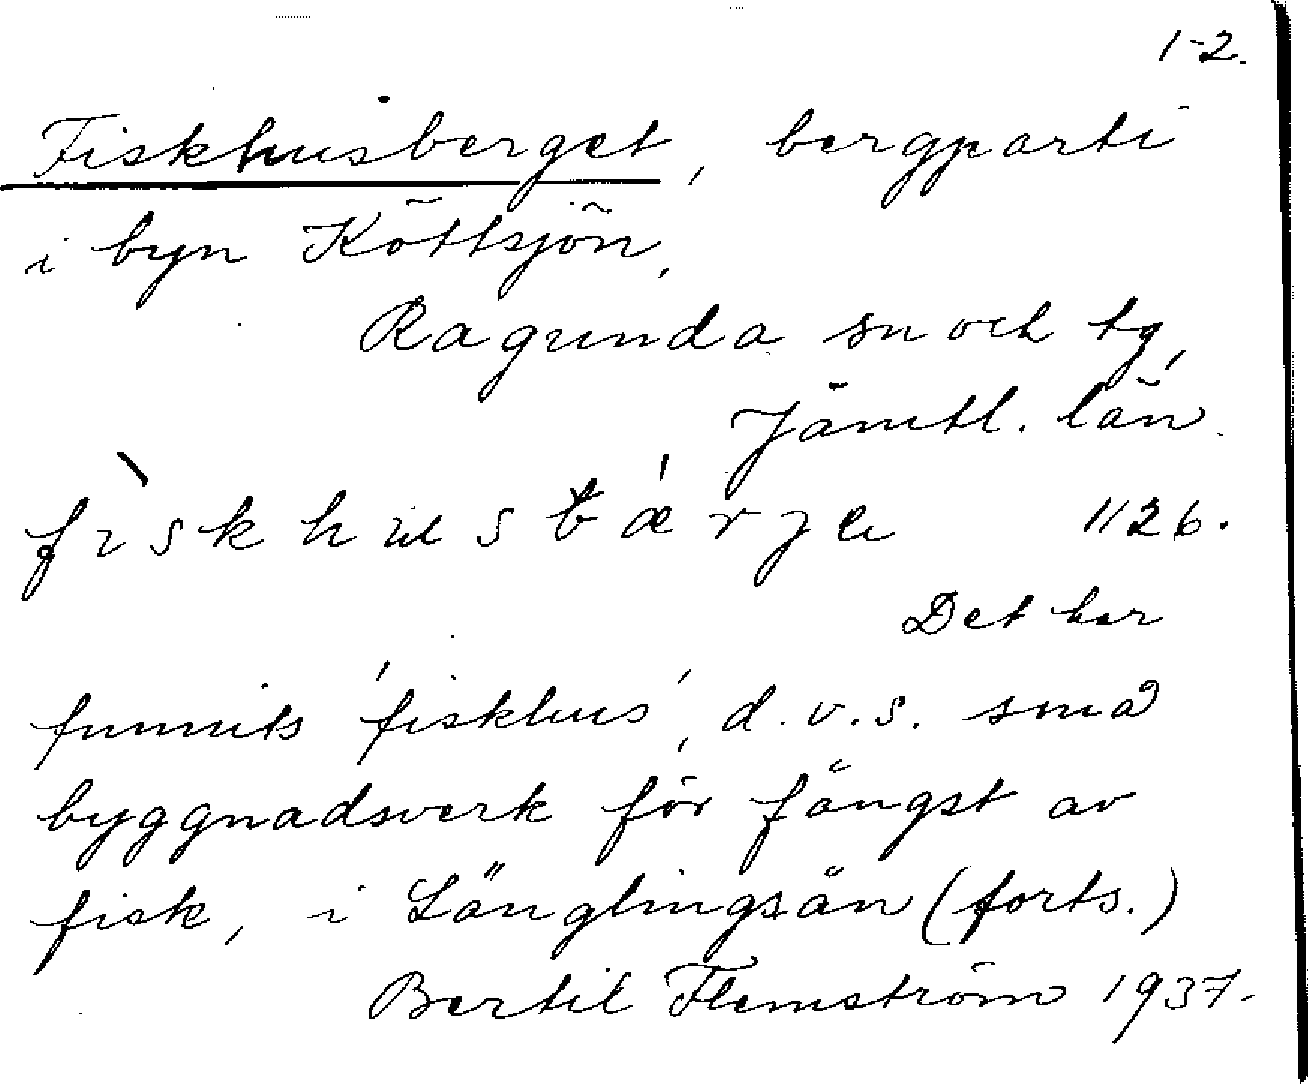 1-2.
Fiskhusberget, bergparti
i byn Köttsjön,
Ragunda sn och tg,
Jämtl. län.
1126.
Det har
funnits 'fiskhus', d.v.s. små
byggnadsverk för fångst av
fisk, i Länglingsån (forts.)
Bertil Flemström 1937.